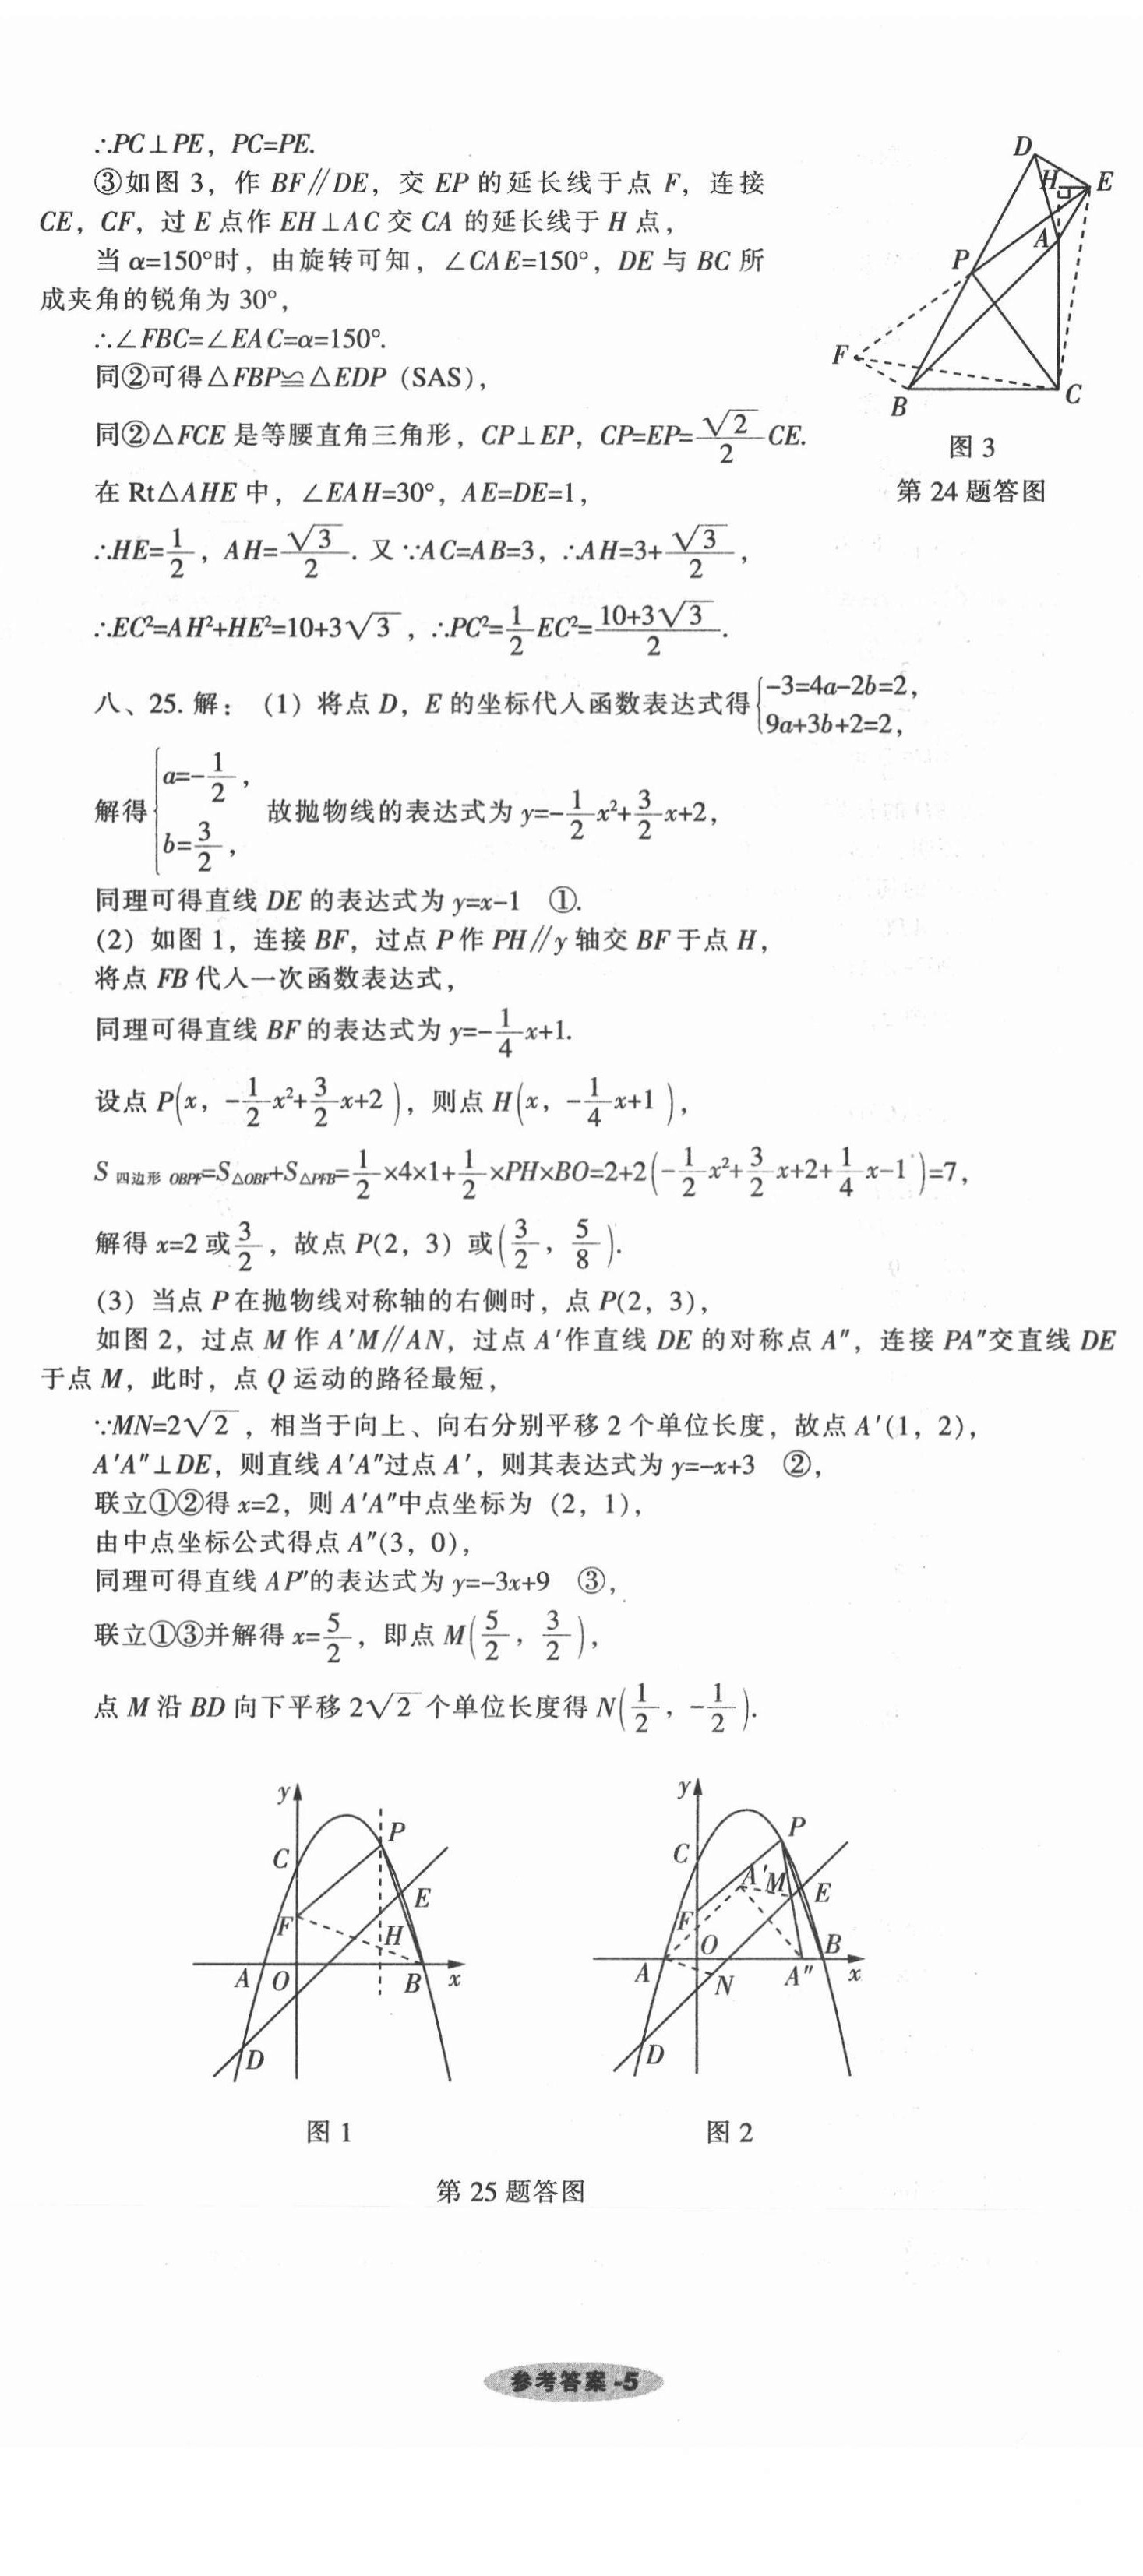 ∴PC⊥PE，PC=PE.
③如图 3，作 BF∥DE，交 EP 的延长线于点 F，连接
CE，CF，过 E 点作 EH⊥AC 交 CA 的延长线于 H 点，
当 α=150°时，由旋转可知，∠CAE=150°，DE 与 BC 所
成夹角的锐角为 30°，
∴∠FBC=∠EAC=α=150°.
同②可得△FBP≌△EDP（SAS），
同②△FCE 是等腰直角三角形，CP⊥EP，CP=EP=√2/2 CE.
在 Rt△AHE 中，∠EAH=30°，AE=DE=1，
∴HE=1/2，AH=√3/2. 又∵AC=AB=3，∴AH=3+√3/2，
∴EC²=AH²+HE²=10+3√3，∴PC²=1/2 EC²=(10+3√3)/2.
D
H
E
A
P
F
B
C
图 3
第 24 题答图
八、25. 解：（1）将点 D，E 的坐标代入函数表达式得{-3=4a-2b=2，
9a+3b+2=2，
解得{a=-1/2，
b=3/2，
故抛物线的表达式为 y=-1/2 x²+3/2 x+2，
同理可得直线 DE 的表达式为 y=x-1 ①.
（2）如图 1，连接 BF，过点 P 作 PH∥y 轴交 BF 于点 H，
将点 FB 代入一次函数表达式，
同理可得直线 BF 的表达式为 y=-1/4 x+1.
设点 P(x，-1/2 x²+3/2 x+2)，则点 H(x，-1/4 x+1)，
S四边形 OBPF=S△OBF+S△PFB=1/2×4×1+1/2×PH×BO=2+2(-1/2 x²+3/2 x+2+1/4 x-1)=7，
解得 x=2 或 3/2，故点 P(2，3）或(3/2，5/8).
（3）当点 P 在抛物线对称轴的右侧时，点 P(2，3)，
如图 2，过点 M 作 A′M∥AN，过点 A′作直线 DE 的对称点 A″，连接 PA″交直线 DE
于点 M，此时，点 Q 运动的路径最短，
∵MN=2√2，相当于向上、向右分别平移 2 个单位长度，故点 A′(1，2)，
A′A″⊥DE，则直线 A′A″过点 A′，则其表达式为 y=-x+3 ②，
联立①②得 x=2，则 A′A″中点坐标为（2，1)，
由中点坐标公式得点 A″(3，0)，
同理可得直线 AP″的表达式为 y=-3x+9 ③，
联立①③并解得 x=5/2，即点 M(5/2，3/2)，
点 M 沿 BD 向下平移 2√2 个单位长度得 N(1/2，-1/2).
y
P
C
E
F
H
A
O
B
x
D
图 1
y
P
C
A′
M
E
F
O
B
A
N
A″
x
D
图 2
第 25 题答图
参考答案-5